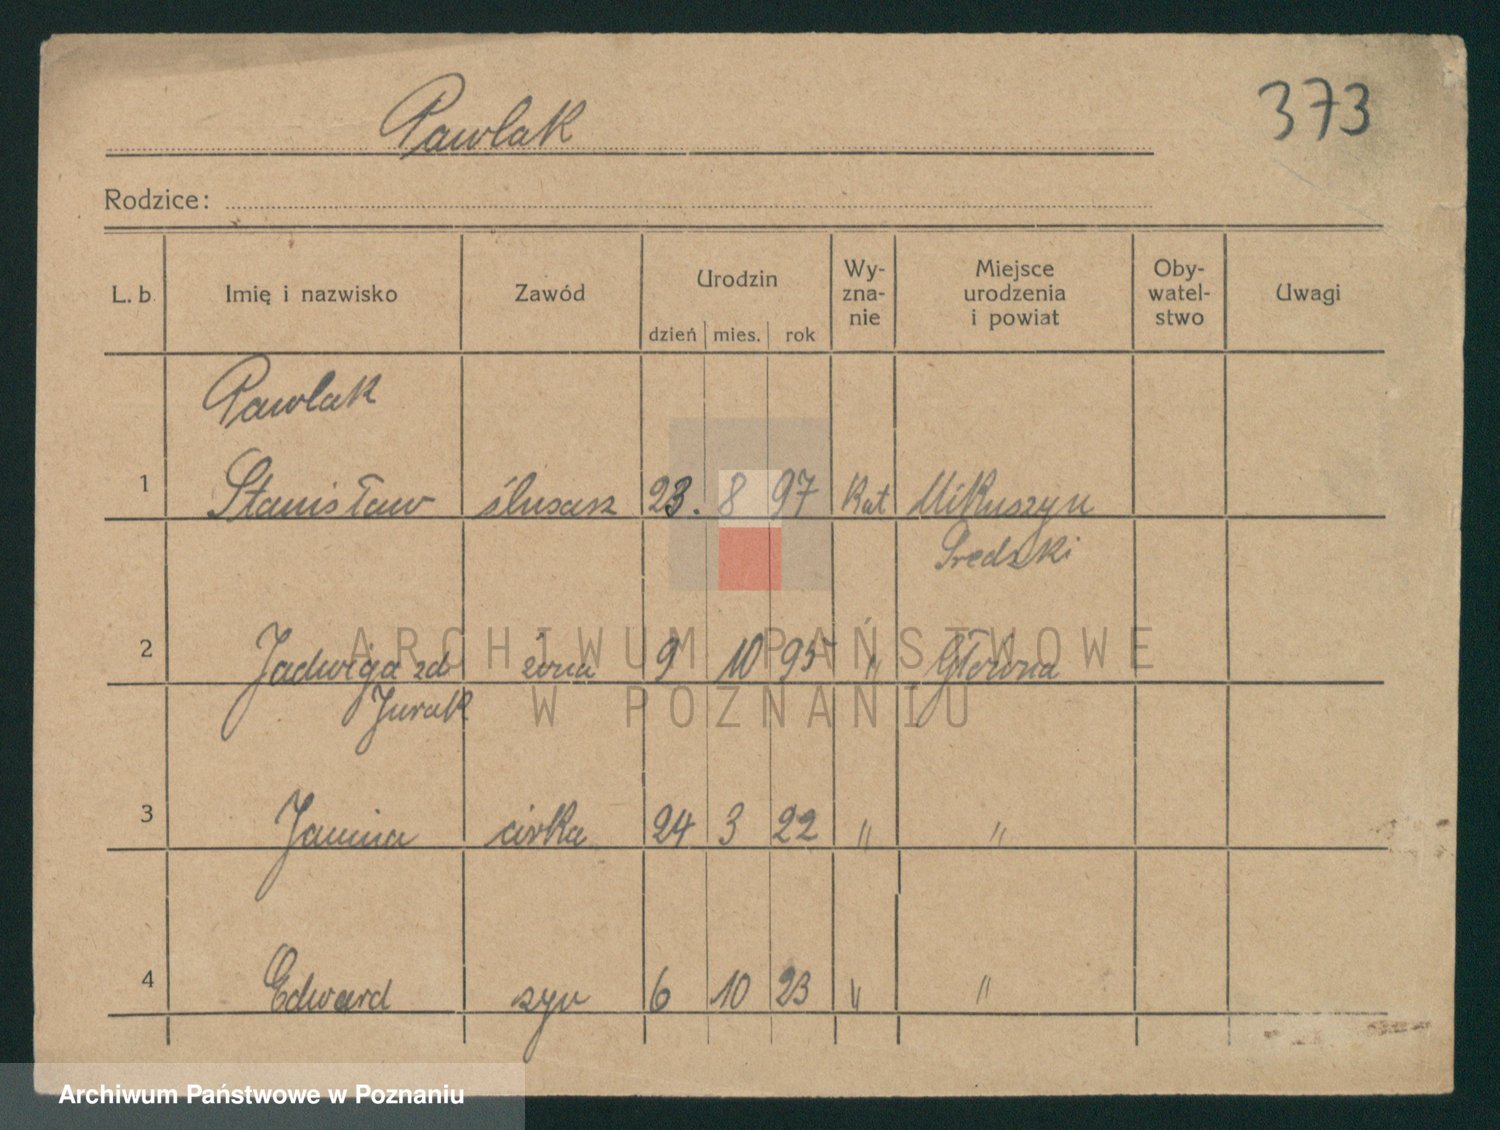 Pawlak
373
Rodzice:
L. b. Imię i nazwisko Zawód Urodzin dzień mies. rok Wy-zna-nie Miejsce urodzenia i powiat Oby-watel-stwo Uwagi
Pawlak
1 Stanisław ślusarz 23. 8 97 Kat Mikuszyn
Średzki
2 Jadwiga zd żona 9 10 95 " Główna
Jurak
3 Janina córka 24 3 22 " "
4 Edward syn 6 10 23 " "
ARCHIWUM PAŃSTWOWE
W POZNANIU
Archiwum Państwowe w Poznaniu